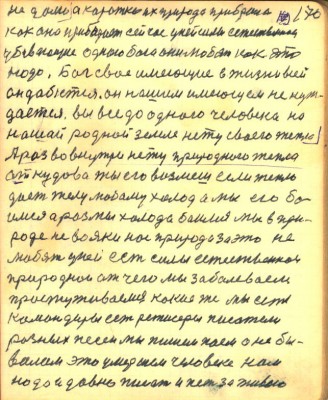 не долю а коротко их природа прибрала 170
как она прибирает сейчас у ней силы естественны
убивающие одного бога они любят как это
надо. Бог свое имеющие в жизни всей
он дабются. он нашим имеющем не нуж-
дается. вы все до одного человека на
нашей родной земле нету своего тепла
А раз во внутри нету природного тепла
откудова ты его возмеш если тело
дает телу любому холод а мы его бо-
имся а раз мы холода боимся мы в при-
роде не вояки нас природа за это не
любят у ней ест силы естественной
природной от чего мы заболеваем
простуживаемся какие же мы ест
командиры ест режисеры писатели
разных песен мы пишем поем о не бы-
валом это умершем человеке нам
надо а давно писат и пет за живого